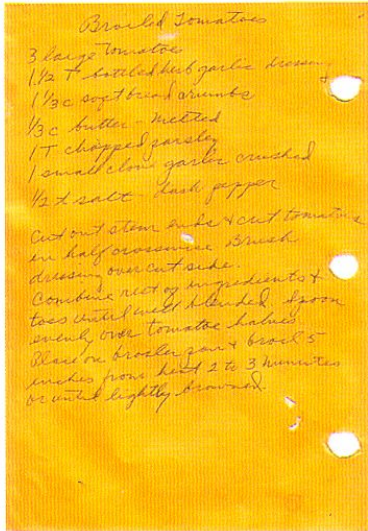 Broiled Tomatoes
3 large tomatoes
1 1/2 T bottled herb garlic dressing
1 1/3 c soft bread crumbs
1/3 c butter - melted
1 T chopped parsley
1 small clove garlic crushed
1/2 t salt - dash pepper
Cut out stem ends & cut tomatoes
in half crosswise Brush
dressing over cut side.
Combine rest of ingredients &
toss until well blended Spoon
evenly over tomatoe halves
Place on broiler pan & broil 5
inches from heat 2 to 3 minutes
or until lightly browned.